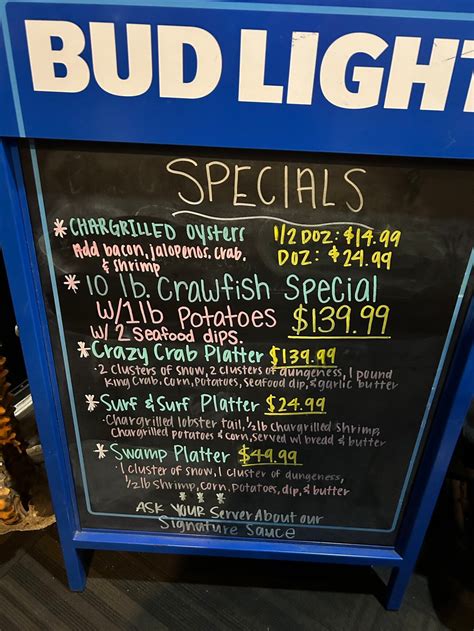 BUD LIGHT
SPECIALS
* CHARGRILLED Oysters 1/2 DOZ: $14.99
Add bacon, jalopenos, crab, DOZ: $24.99
& shrimp
* 10 lb. Crawfish Special
W/1lb Potatoes $139.99
W/ 2 Seafood dips.
* Crazy Crab Platter $139.99
· 2 clusters of snow, 2 clusters of dungeness, 1 pound
King Crab, corn, potatoes, seafood dip, & garlic butter
* Surf & Surf Platter $24.99
· Chargrilled lobster tail, 1/2 lb Chargrilled Shrimp,
Chargrilled potatoes & corn, served w/ bread & butter
* Swamp Platter $49.99
· 1 cluster of snow, 1 cluster of dungeness,
1/2 lb shrimp, corn, potatoes, dip, & butter
* * *
ASK YOUR Server About our
Signature Sauce